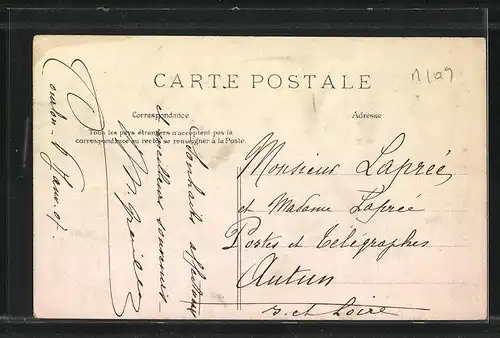 CARTE POSTALE
n109
Correspondance
Adresse
Tous les pays étrangers n'acceptent pas la
correspondance au recto se renseigner à la Poste.
Monsieur Laprée,
et Madame Laprée
Postes et Télégraphes
Autun
S. et Loire
Souhaits affectueux
et meilleurs souvenirs